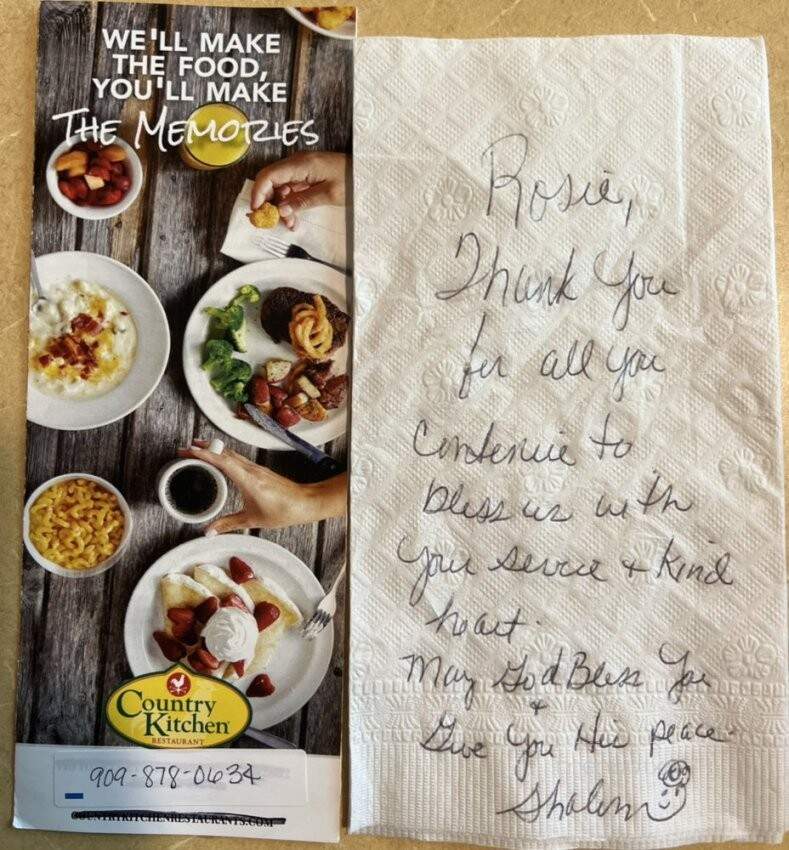 WE'LL MAKE
THE FOOD,
YOU'LL MAKE
THE MEMORIES
Country
Kitchen
RESTAURANT
909-878-0634
COUNTRYKITCHENRESTAURANTS.COM
Rosie,
Thank You
for all you
Contenue to
bless us with
your service + kind
heart.
May God Bless You
+
Give You His peace
Shalom